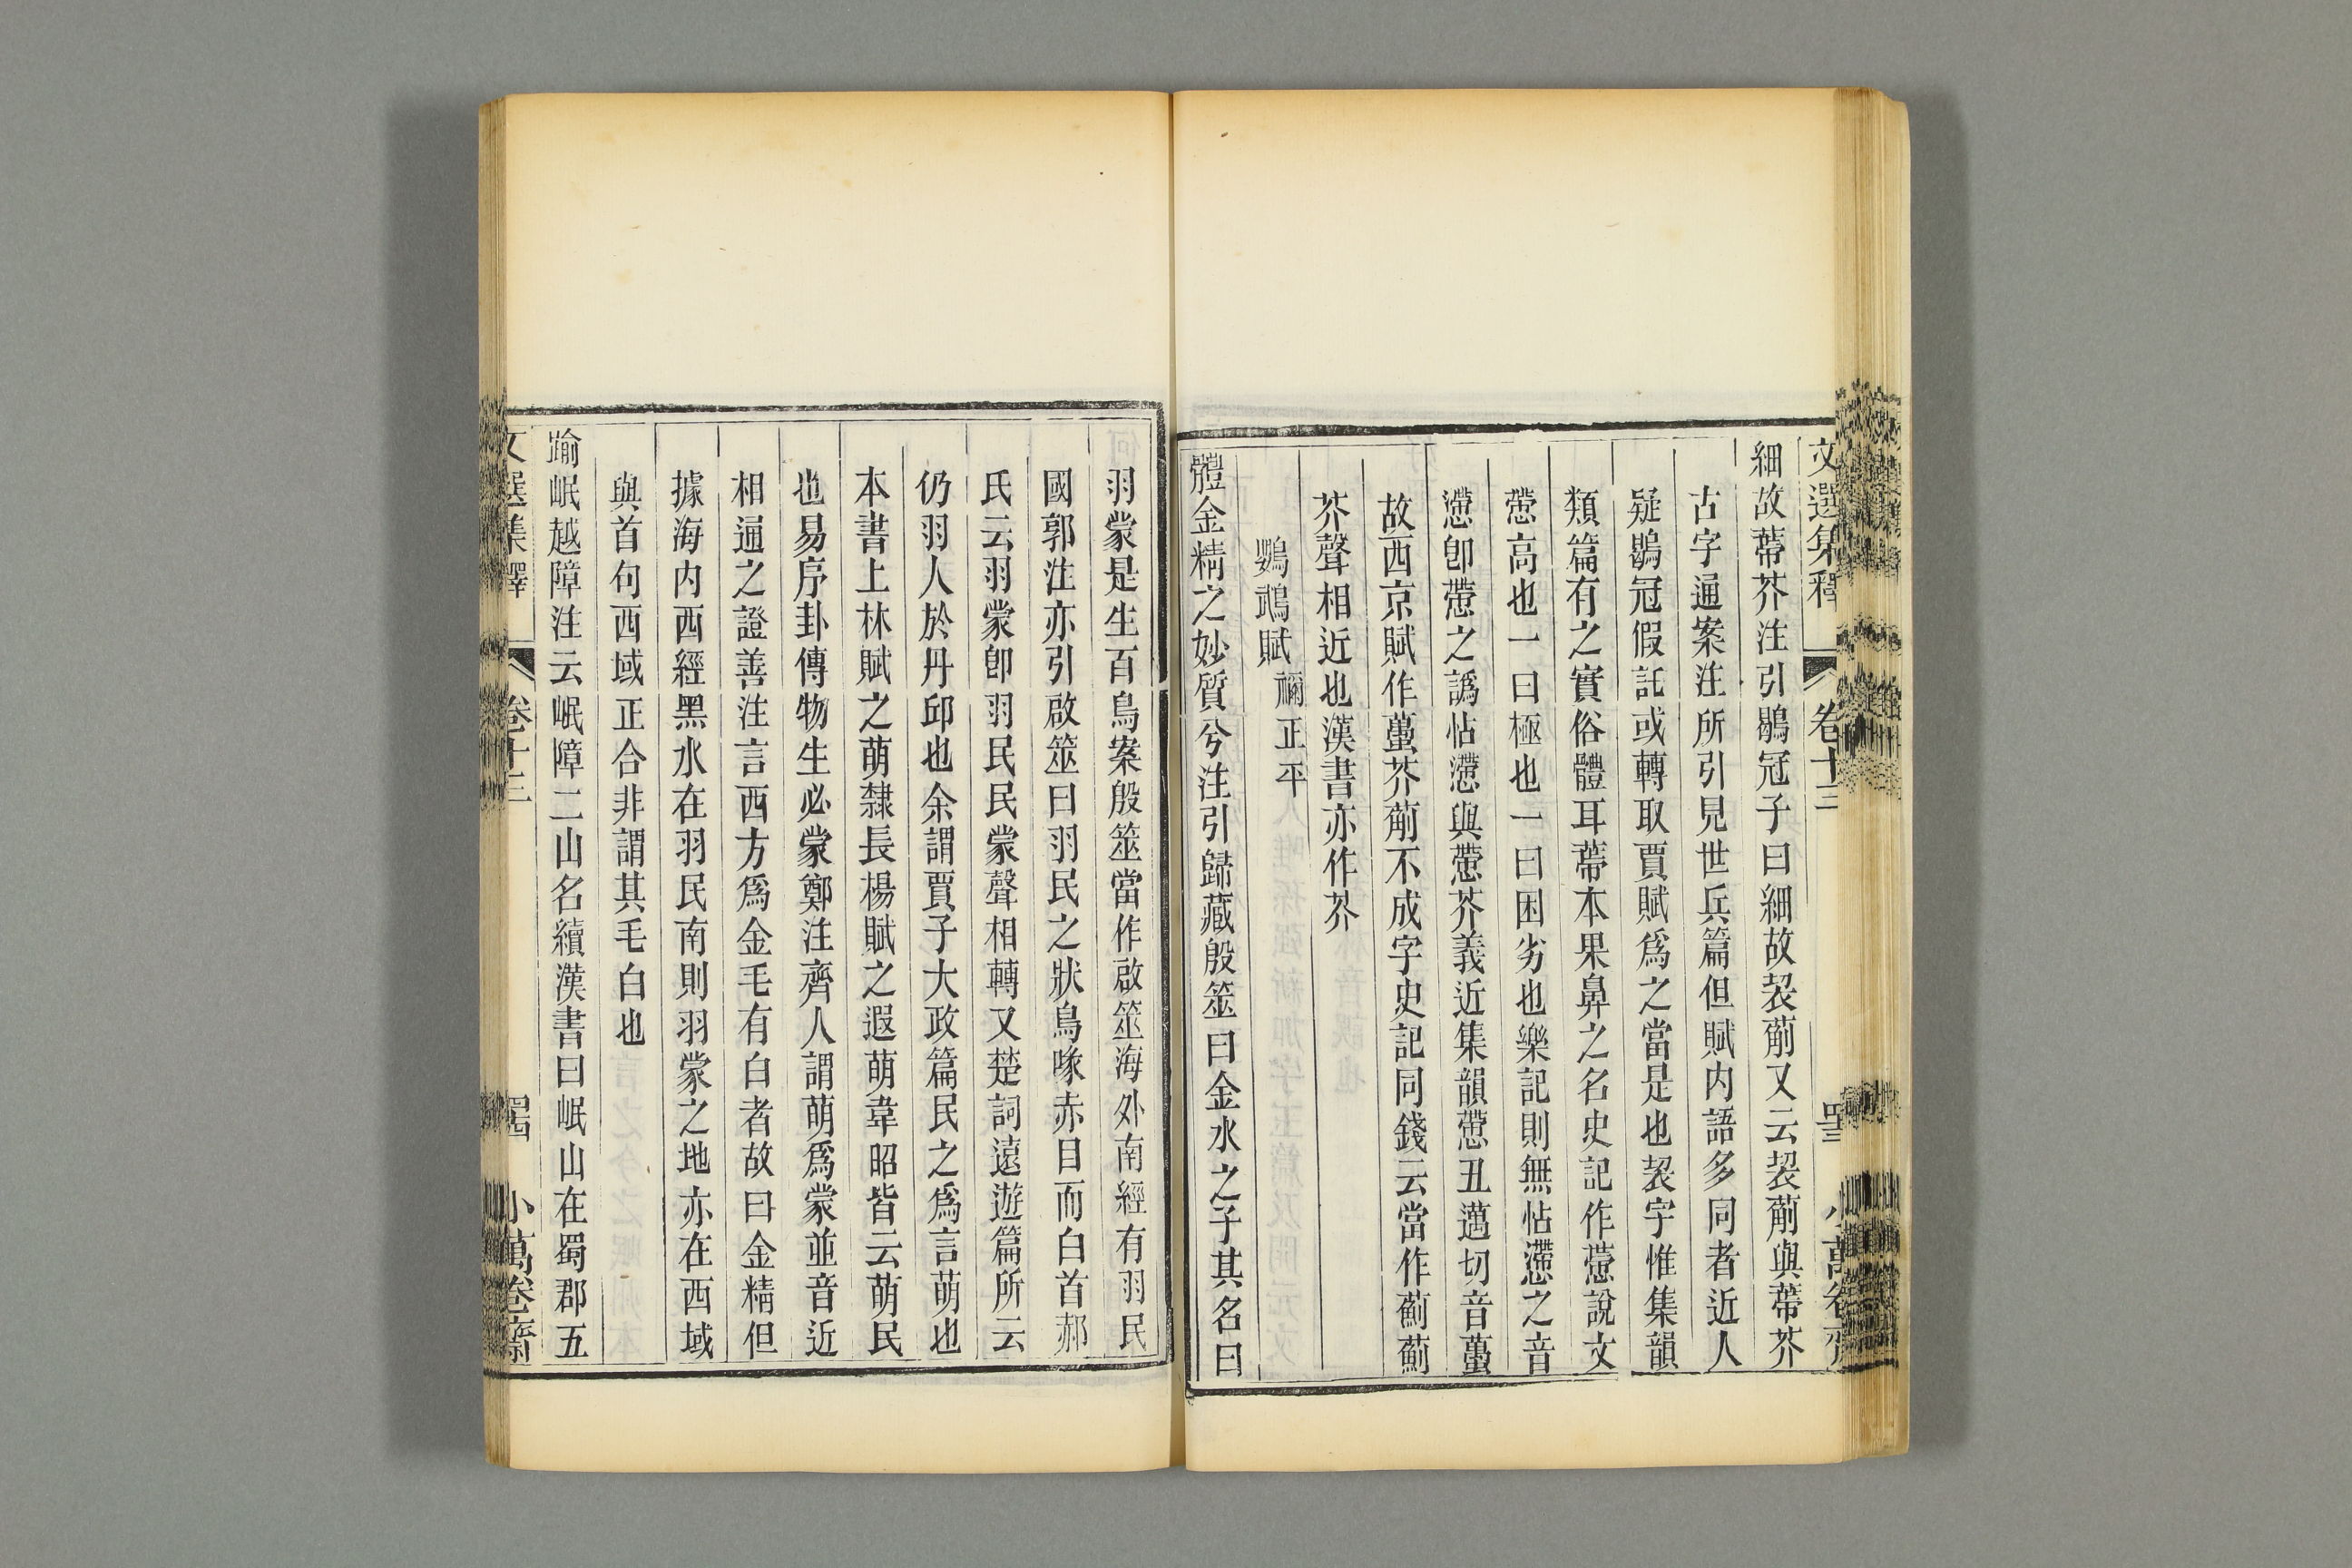 文選集釋 卷十三 四三 小萬卷齋
細故蔕芥注引鶡冠子曰細故袃葪又云袃葪與蔕芥
古字通案注所引見世兵篇但賦內語多同者近人
疑鶡冠假託或轉取賈賦爲之當是也袃字惟集韻
類篇有之實俗體耳蔕本果鼻之名史記作慸說文
慸高也一曰極也一曰困劣也樂記則無怗懘之音
懘卽慸之譌怗懘與慸芥義近集韻慸丑邁切音蠆
故西京賦作蠆芥葪不成字史記同錢云當作薊薊
芥聲相近也漢書亦作芥
鸚鵡賦 禰正平
體金精之妙質兮注引歸藏殷筮曰金水之子其名曰
羽蒙是生百鳥案殷筮當作啟筮海外南經有羽民
國郭注亦引啟筮曰羽民之狀鳥喙赤目而白首郝
氏云羽蒙卽羽民民蒙聲相轉又楚詞遠遊篇所云
仍羽人於丹邱也余謂賈子大政篇民之爲言萌也
本書上林賦之萌隸長楊賦之遐萌韋昭皆云萌民
也易序卦傳物生必蒙鄭注齊人謂萌爲蒙並音近
相通之證善注言西方爲金毛有白者故曰金精但
據海內西經黑水在羽民南則羽蒙之地亦在西域
與首句西域正合非謂其毛白也
踰岷越障注云岷障二山名續漢書曰岷山在蜀郡五
文選集釋 卷十三 四四 小萬卷齋